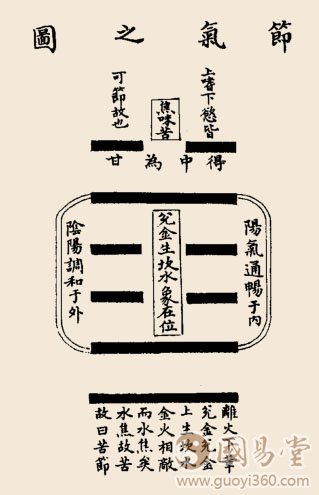 節氣之圖
上嗜下慾皆
焦味苦
可節故也
得中為甘
陽氣通暢于內
兌金生坎水象在位
陰陽調和于外
離火下革
兌金兌金
上生坎水
金火相敵
而水焦矣
水焦故苦
故曰苦節
國易堂
www.guoyi360.com